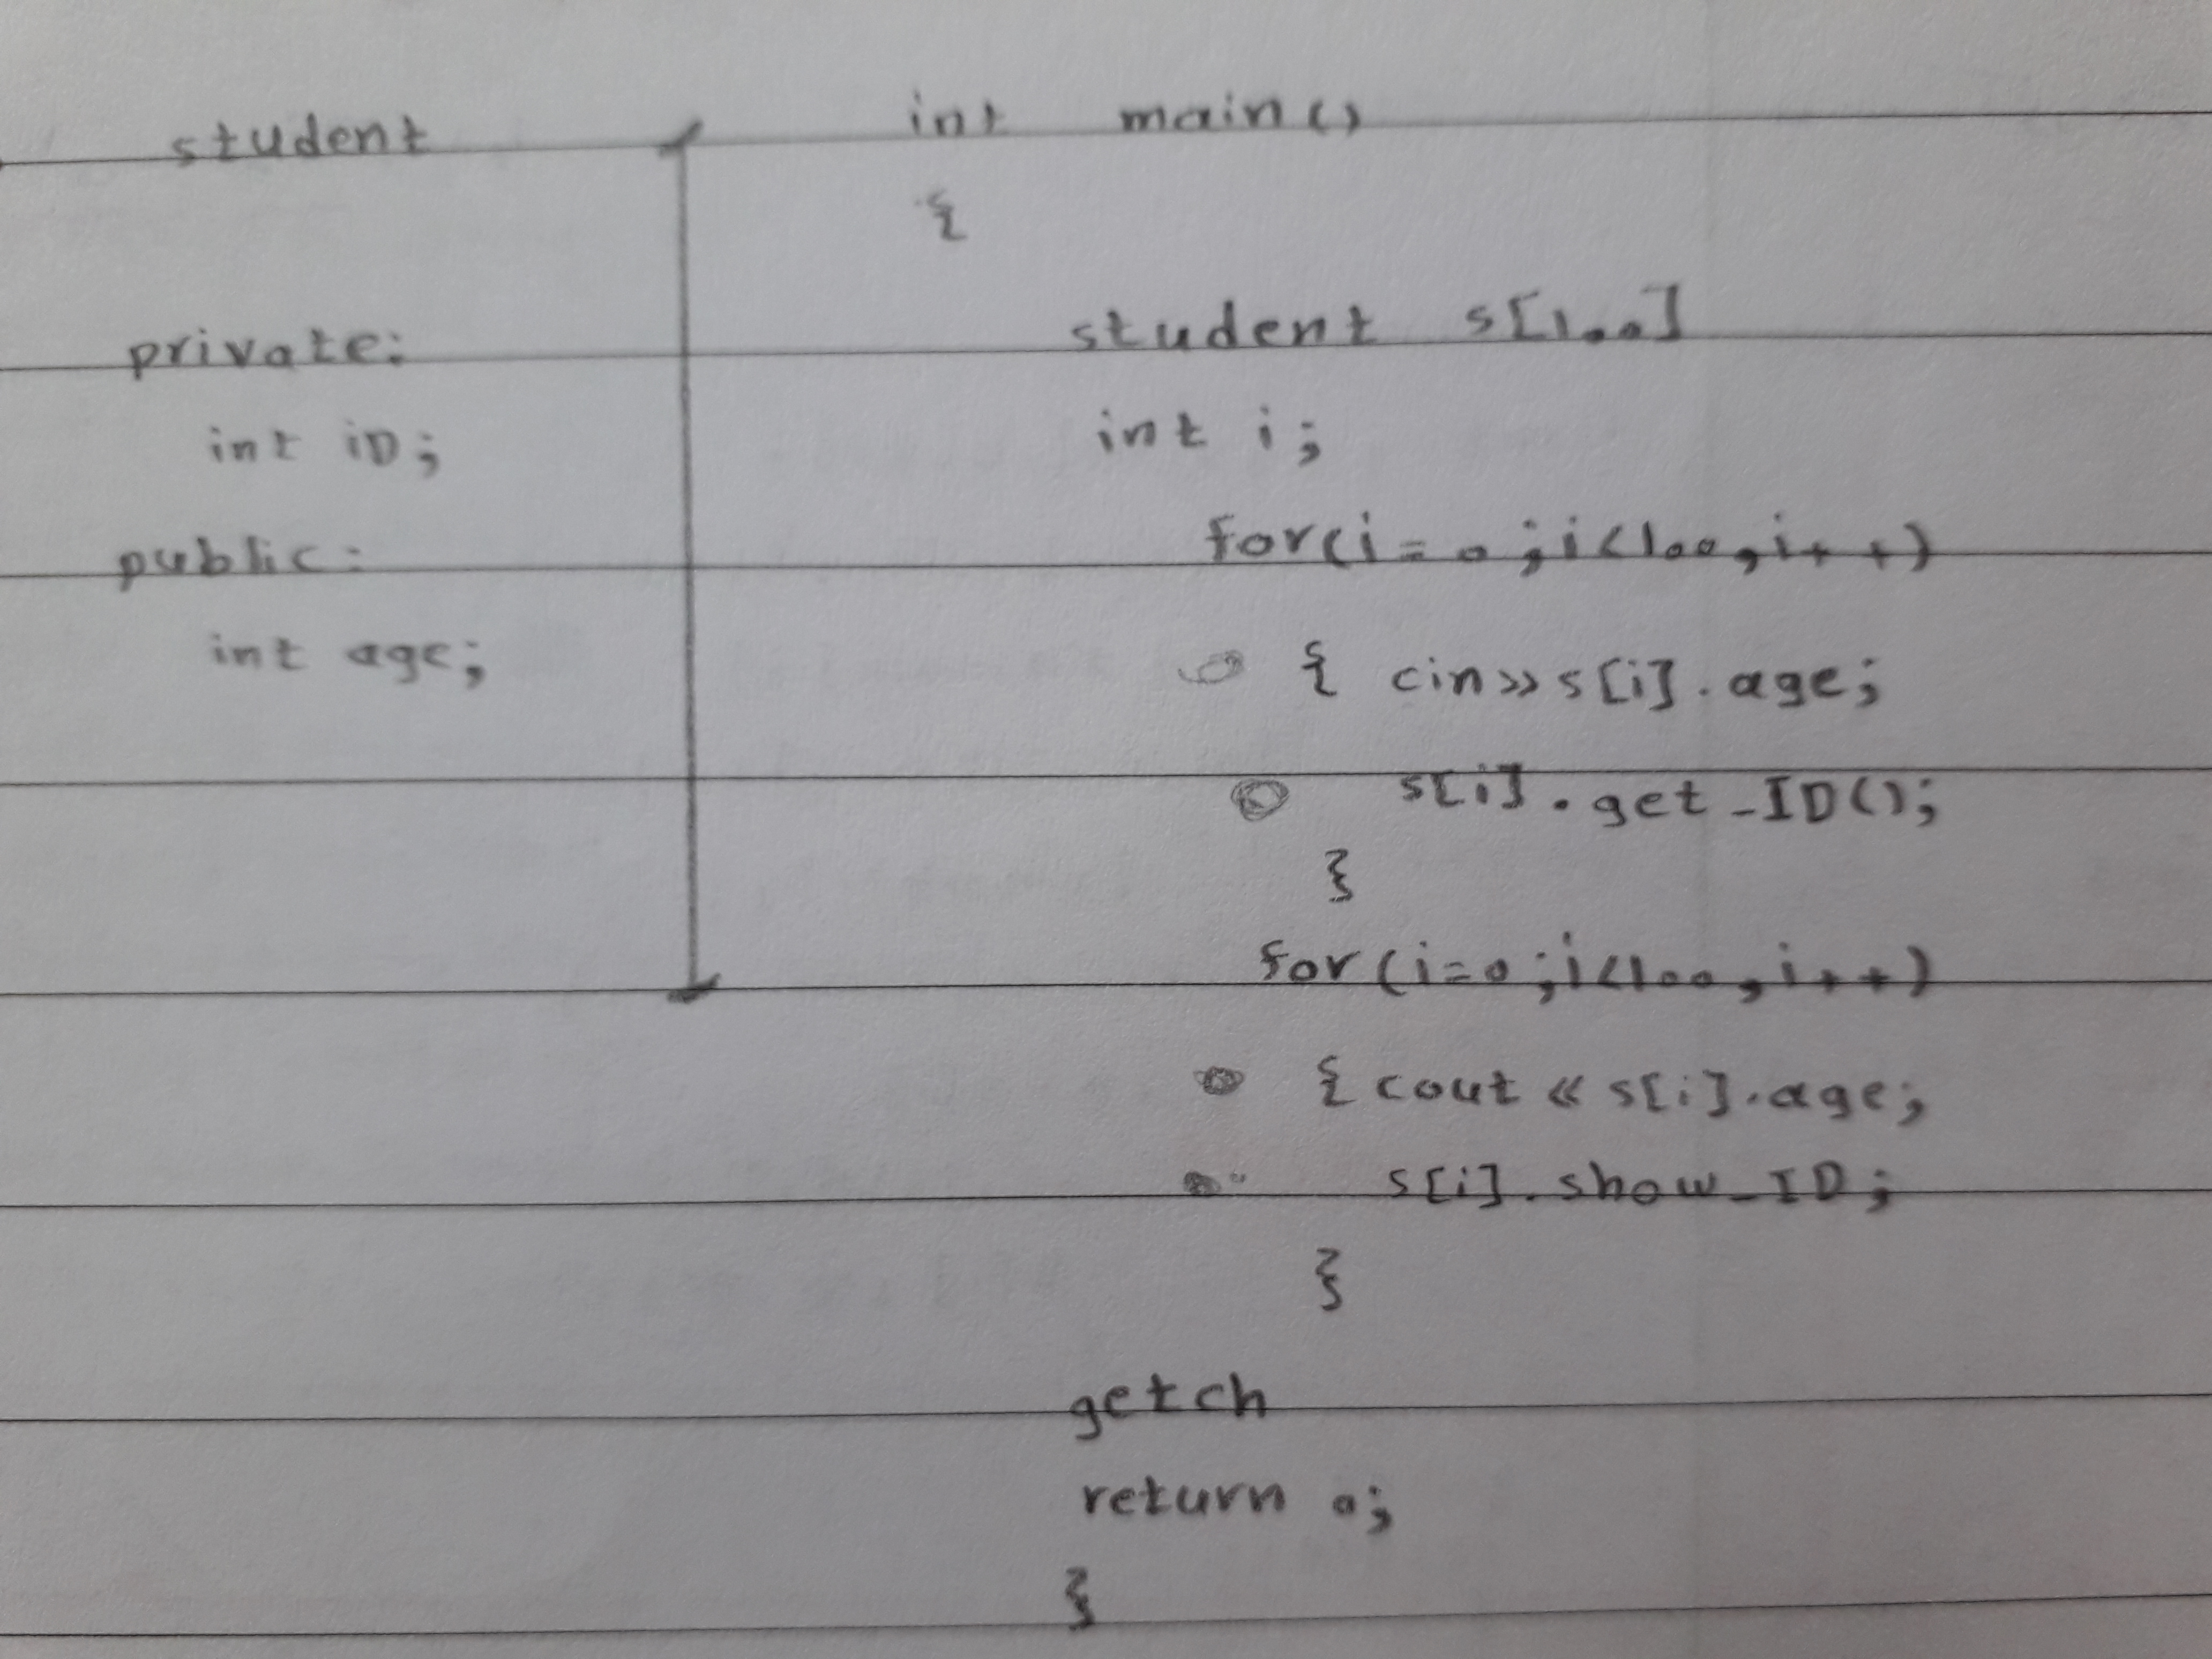 student
private:
int iD;
public:
int age;
int main()
{
student s[100]
int i;
for(i=0;i<100,i++)
{ cin>>s[i].age;
s[i].get_ID();
}
for(i=0;i<100,i++)
{cout<<s[i].age;
s[i].show_ID;
}
getch
return 0;
}